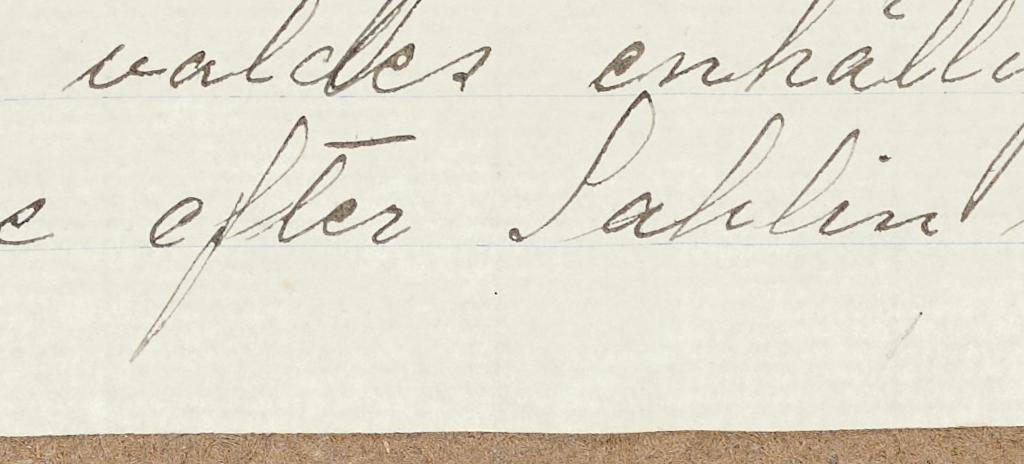 valdes enhäll
e efter Sahlin